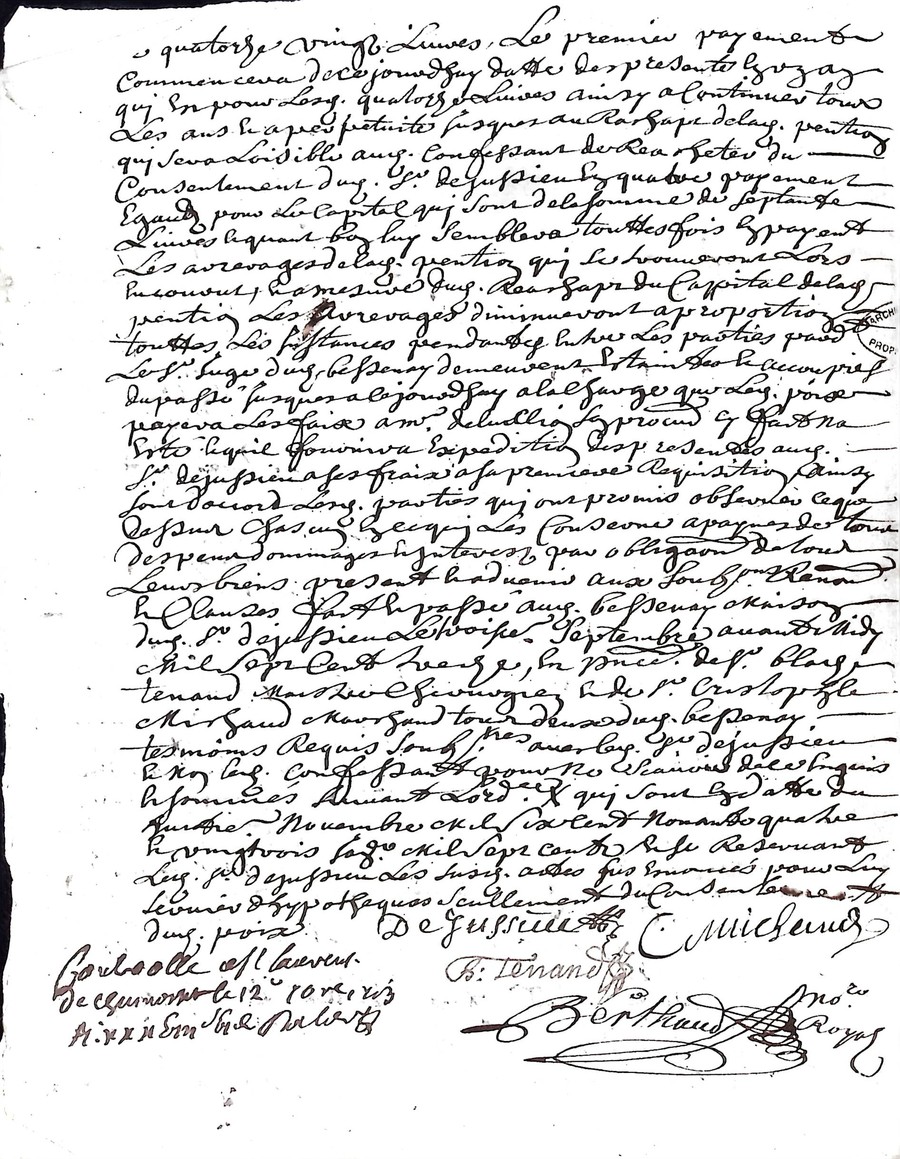 quatorze vingt Livres, Le premier payement
Commencera de ce jourdhuy datte des presentes En un an
qui En pour Lesq. quatorze Livres ainsy a Continuer tous
Les ans En a perpetuité jusques au Rachapt de lad. pention
qui sera Loisible aud. Confessant de Rea cheter du
Consentement dud. Sr. dejussieu En quatre payement
Egaux pour Le Capital qui sont de la somme de septante
Livres Et quant bon luy semblera touttes fois En payent
Les arrerages de lad. pention qui se trouveront Lors
Encourut, Et a mesure dud. Reachapt du Cappital de lad.
pention Les Arrerages diminueront a proportion
touttes Les Instances pendantes Entre Les parties pard
Le Sr. Juge dud. bessenay demeurent Estaintes Et accoupies
du passé jusques a ce jourdhuy a la Charge que Led. poix
payera Les fraix a me. procureur Et
Et quil fournira Expedition des presentes aud.
Sr. dejussieu a ses fraix a sa premiere Requisition, Ainsy
sont daccord Lesd. parties qui ont promis observer ce que
dessus Chascun En ce qui Les Conserne a paynes de tous
despens dommages Et Interest par obligaon de tous
Leurs biens present Et advenir aux soubson Renon
Et Clauses, fait Et passé aud. bessenay Maison
dud. Sr. dejussieu Le Septembre avant Midy
Mil Sept Cent treize, En pnce. de Sr. blaise
tenand Maistre Chirurgien Et de Sr. Cristophle
Michaud Marchand tous deux dud. bessenay
tesmoins Requis soubsnes avec led. Sr dejussieu
Et Non led. Confessant pour Ne scavoir de ce Enquis
Et sommés suivant Lordce. X qui sont En datte du
Novembre Mil Six Cent Nonante quatre
Et vingt trois Mil Sept Cent Et se Reservant
Led. Sr dejussieu Les susd. actes sus Enoncés pour Luy
servir dhypotheques seullement du Consentement
dud. poix
De Jussieu
C. Michaud
B. Tenand
Controlle
le 12e
Berthaud
Nore
Royal
ARCH
PROP.